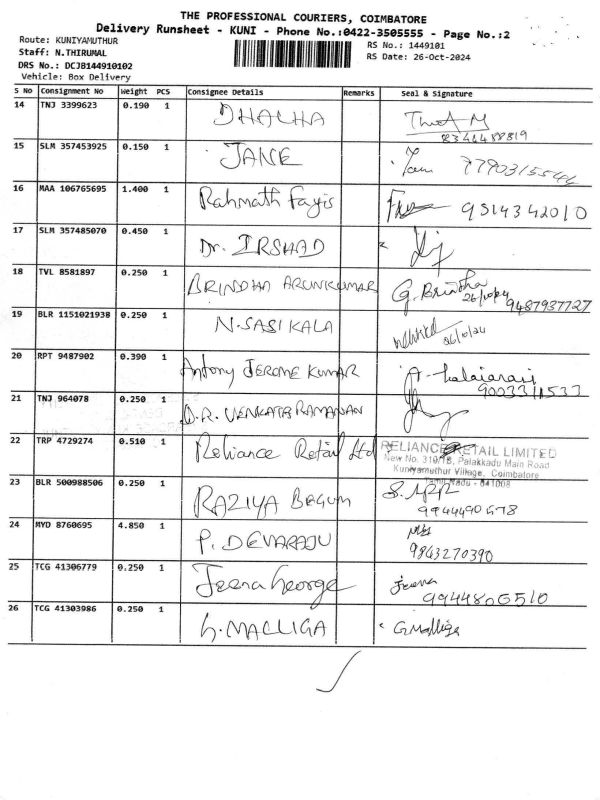 THE PROFESSIONAL COURIERS, COIMBATORE
Delivery Runsheet - KUNI - Phone No.:0422-3505555 - Page No.:2
Route: KUNIYAMUTHUR
RS No.: 1449101
Staff: N.THIRUMAL
RS Date: 26-Oct-2024
DRS No.: DCJB144910102
Vehicle: Box Delivery
S No Consignment No Weight PCS Consignee Details Remarks Seal & Signature
14 TNJ 3399623 0.190 1 DHALHA
15 SLM 357453925 0.150 1 JANE
16 MAA 106765695 1.400 1 Rahmath Fayis 9514342010
17 SLM 357485070 0.450 1 Dr. IRSHAD
18 TVL 8581897 0.250 1 BRINDHA ARUNKUMAR G. Brindha
26/10/24 9487937727
19 BLR 1151021938 0.250 1 N.SASIKALA
20 RPT 9487902 0.390 1 Antony JEROME KUMAR
21 TNJ 964078 0.250 1 D.R. VENKATA RAMANAN
22 TRP 4729274 0.510 1 Reliance Retail Ltd RELIANCE RETAIL LIMITED
New No. 310/1B, Palakkadu Main Road
Kuniyamuthur Village, Coimbatore
Tamil Nadu - 641008
23 BLR 500988506 0.250 1 RAZIYA BEGUM
24 MYD 8760695 4.850 1 P. DEVARAJU
9843270390
25 TCG 41306779 0.250 1 Jeena George Jeena
9944806510
26 TCG 41303986 0.250 1 G. MALLIGA G.Malliga